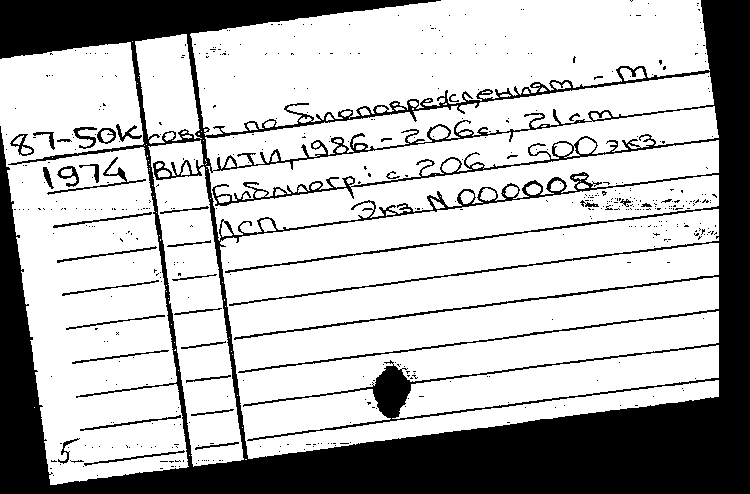 87-50К совет по биоповреждениям. - М.:
1974 ВИНИТИ, 1986. - 206 с.; 21 см.
Библиогр.: с. 206. - 500 экз.
ДСП. Экз. N 000008
5